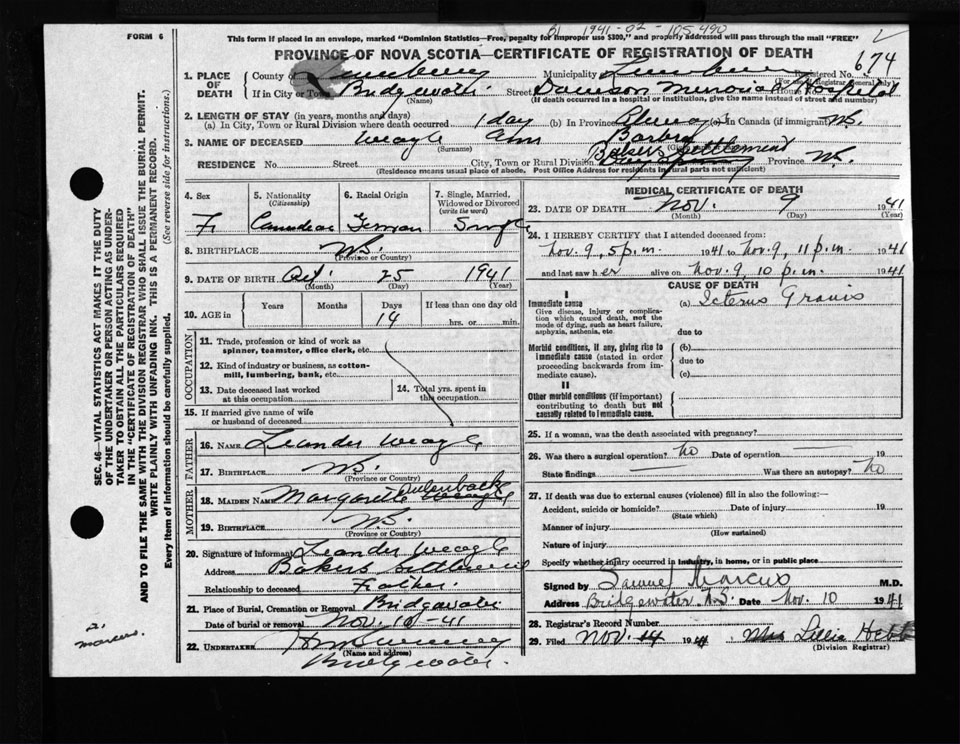 61 1941-02-105-490
FORM 6
This form if placed in an envelope, marked "Dominion Statistics—Free, penalty for improper use $300," and properly addressed will pass through the mail "FREE"
PROVINCE OF NOVA SCOTIA—CERTIFICATE OF REGISTRATION OF DEATH
674
1. PLACE OF DEATH
County of Lunenburg Municipality Lunenburg Registered No.
(For use of Registrar General only)
If in City or Town Bridgewater Street Dawson Memorial Hospital House No.
(Name) (If death occurred in a hospital or institution, give the name instead of street and number)
2. LENGTH OF STAY (in years, months and days)
(a) In City, Town or Rural Division where death occurred 1 day (b) In Province Always (c) In Canada (if immigrant) N.S.
3. NAME OF DECEASED Weagle Ann Barbra
(Surname)
Bakers Settlement
RESIDENCE No. Street City, Town or Rural Division Province N.S.
(Residence means usual place of abode. Post Office Address for residents in rural parts not sufficient)
4. Sex
F
5. Nationality
(Citizenship)
Canadian
6. Racial Origin
German
7. Single, Married, Widowed or Divorced
(write the word)
Single
8. BIRTHPLACE N.S.
(Province or Country)
9. DATE OF BIRTH Oct. 25 1941
(Month) (Day) (Year)
10. AGE in
Years Months Days If less than one day old
14 hrs. or min.
OCCUPATION
11. Trade, profession or kind of work as spinner, teamster, office clerk, etc.
12. Kind of industry or business, as cotton-mill, lumbering, bank, etc.
13. Date deceased last worked at this occupation
14. Total yrs. spent in this occupation
15. If married give name of wife or husband of deceased
FATHER
16. NAME Leander Weagle
17. BIRTHPLACE N.S.
(Province or Country)
MOTHER
18. MAIDEN NAME Margaret Aulenback Weagle
19. BIRTHPLACE N.S.
(Province or Country)
20. Signature of informant Leander Weagle
Address Bakers Settlement
Relationship to deceased Father.
21. Place of Burial, Cremation or Removal Bridgewater
Date of burial or removal Nov. 10-41
22. UNDERTAKER
(Name and address)
Bridgewater.
MEDICAL CERTIFICATE OF DEATH
23. DATE OF DEATH Nov. 9 1941
(Month) (Day) (Year)
24. I HEREBY CERTIFY that I attended deceased from:
Nov. 9, 5 p.m. 1941 to Nov. 9, 11 p.m. 1941
and last saw her alive on Nov. 9, 10 p.m. 1941
CAUSE OF DEATH
I
Immediate cause (a) Icterus Gravis
Give disease, injury or complication which caused death, not the mode of dying, such as heart failure, asphyxia, asthenia, etc.
due to
Morbid conditions, if any, giving rise to immediate cause (stated in order proceeding backwards from immediate cause).
(b)
due to
(c)
II
Other morbid conditions (if important) contributing to death but not causally related to immediate cause.
25. If a woman, was the death associated with pregnancy?
26. Was there a surgical operation? No Date of operation 19
State findings Was there an autopsy? No
27. If death was due to external causes (violence) fill in also the following:—
Accident, suicide or homicide? Date of injury 19
(State which)
Manner of injury
(How sustained)
Nature of injury
Specify whether injury occurred in industry, in home, or in public place
Signed by Samuel Marcus M.D.
Address Bridgewater N.S. Date Nov. 10 1941
28. Registrar's Record Number
29. Filed Nov. 14 1941 Mrs Lillie Hebb
(Division Registrar)
SEC. 46—VITAL STATISTICS ACT MAKES IT THE DUTY
OF THE UNDERTAKER OR PERSON ACTING AS UNDERTAKER TO OBTAIN ALL THE PARTICULARS REQUIRED
IN THE "CERTIFICATE OF REGISTRATION OF DEATH"
AND TO FILE THE SAME WITH THE DIVISION REGISTRAR WHO SHALL ISSUE THE BURIAL PERMIT.
WRITE PLAINLY WITH UNFADING INK. THIS IS A PERMANENT RECORD.
Every item of information should be carefully supplied. (See reverse side for instructions.)